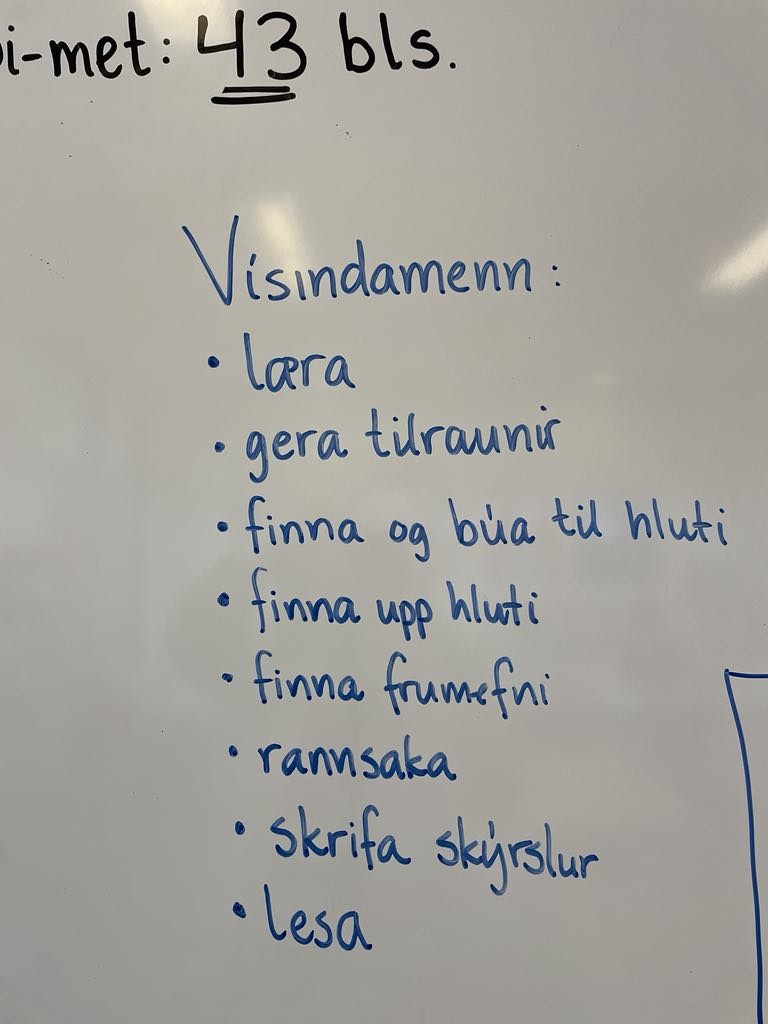 i-met: 43 bls.
Vísindamenn:
• læra
• gera tilraunir
• finna og búa til hluti
• finna upp hluti
• finna frumefni
• rannsaka
• skrifa skýrslur
• lesa